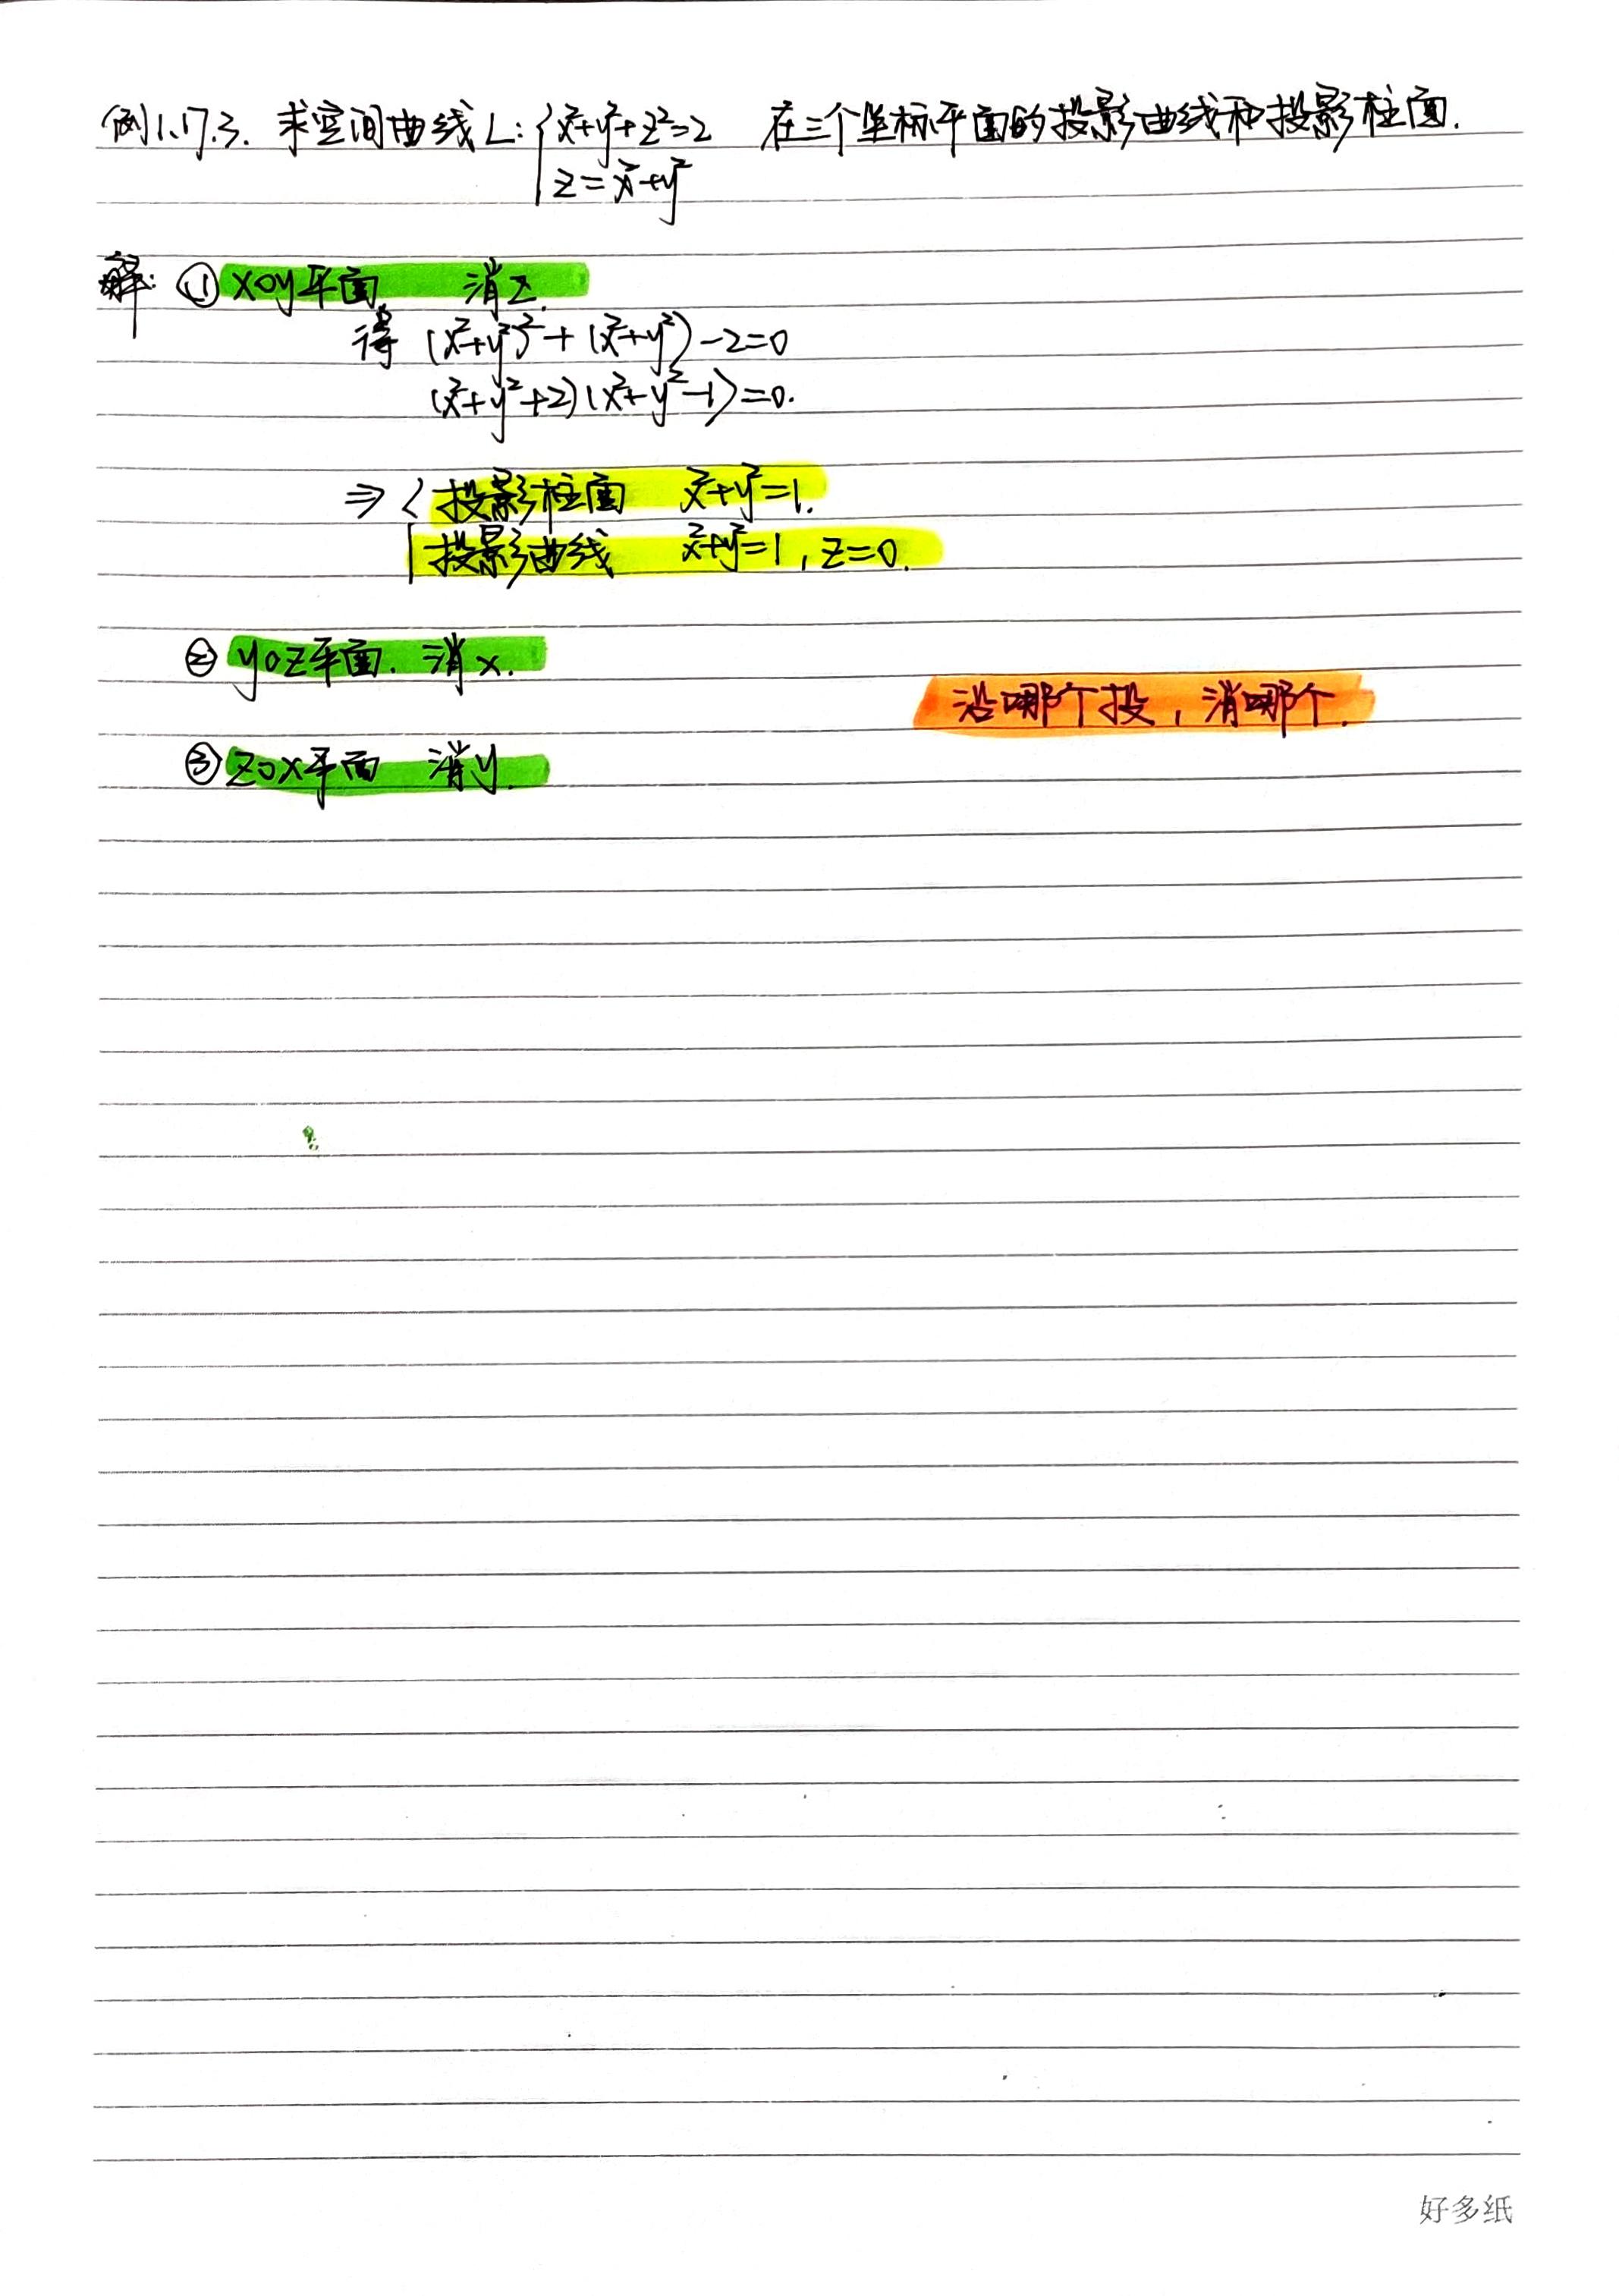 例1.17.3. 求空间曲线L: { x²+y²+z²=2 在三个坐标平面的投影曲线和投影柱面.
z=x²+y²
解: ① xoy平面 消z.
得 (x²+y²)²+(x²+y²)-2=0
(x²+y²+2)(x²+y²-1)=0.
⇒ { 投影柱面 x²+y²=1.
投影曲线 x²+y²=1, z=0.
② yoz平面. 消x.
沿哪个投, 消哪个.
③ zox平面 消y.
好多纸